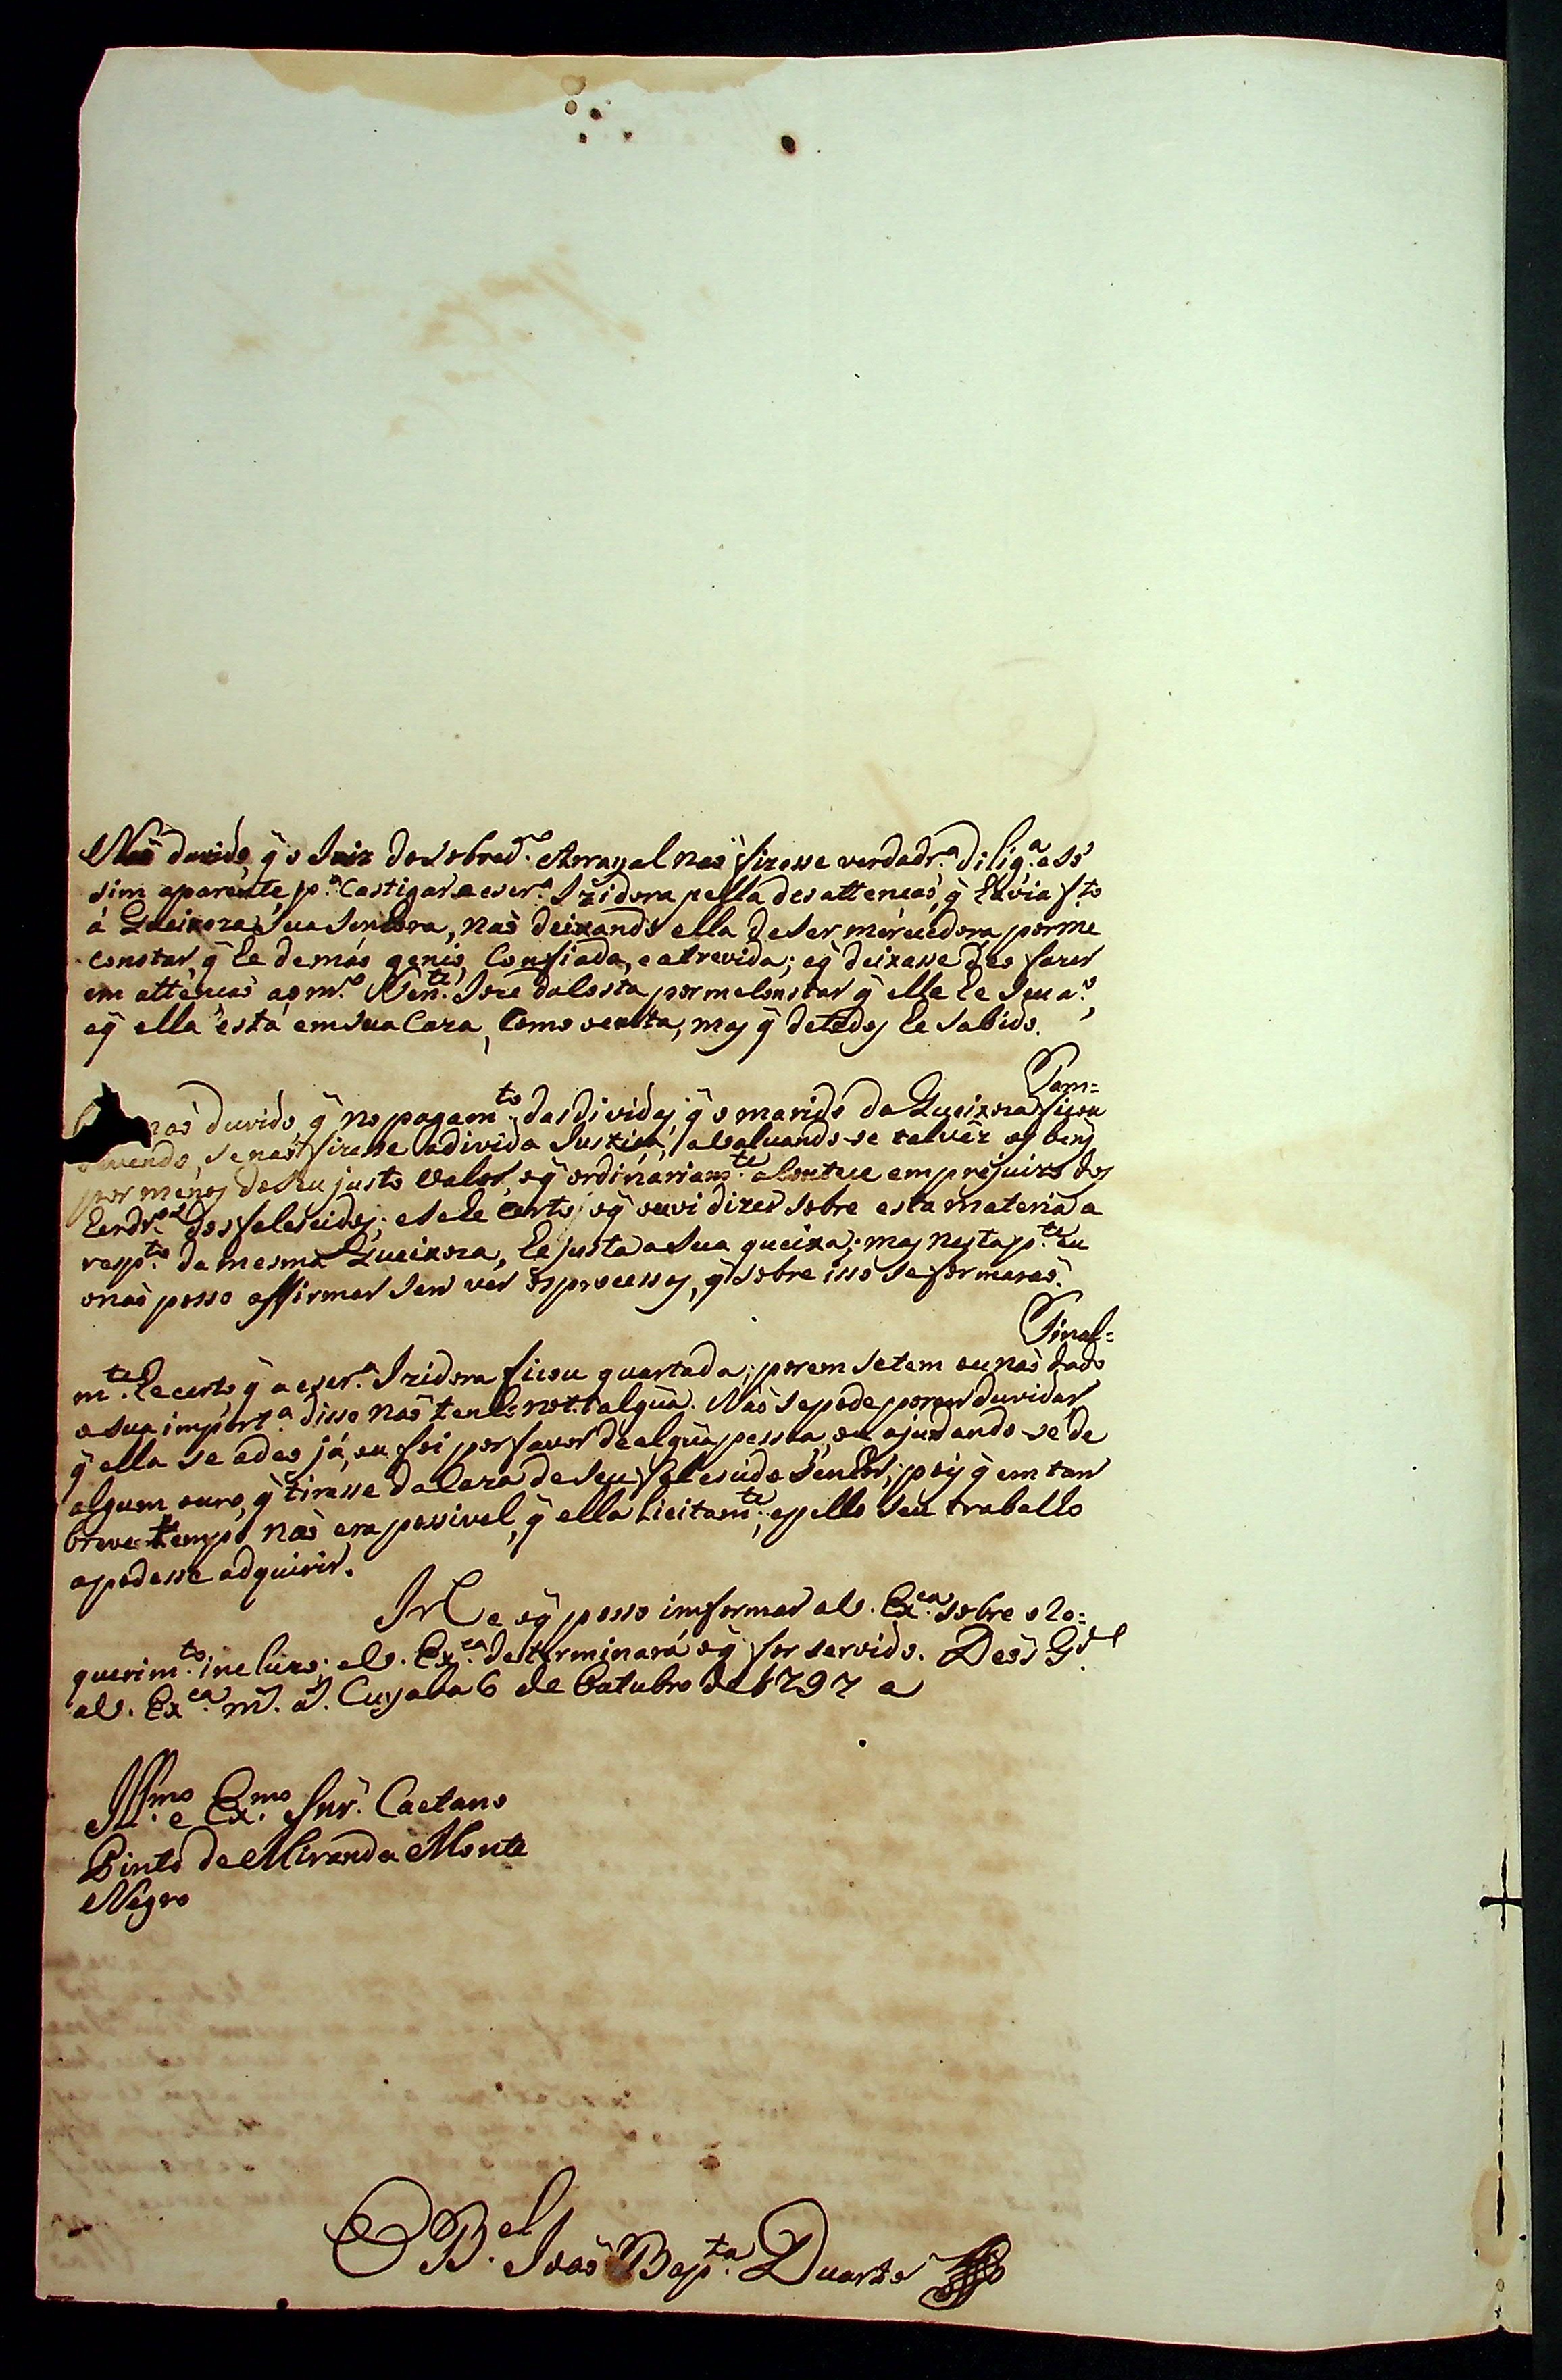 Naõ duvido, q̃ o Juiz do Sobred.º Arrayal naõ fizesse verdadr.ª dilig.ª e só
sim aparente p.ª Castigar a escr.ª Izidora pella desattençaõ, q̃ havia f.to
á Queixoza Sua Senhora, naõ deixando ella de ser merecedora, por me
constar, q̃ he de máo genio, Confiada, e atrevida; e q̃ deixasse de o fazer
em attençaõ ao m.º Ten.te Joze da Costa por me Constar q̃ elle he Seu a.º,
e q̃ ella está em Sua Caza, Como occulta, mas q̃ de todos he Sabido.
Tam=
naõ duvido, q̃ no pagam.to das dividas, q̃ o marido da Queixoza ficou
devendo, Se naõ fizesse a divida Justiça, avaluando-se talvez os bens
por menos do Seu justo valor, o q̃ ordinariam.te aContece em prejuizo dos
herdr.os dos falescidos; e Se he Certo, o q̃ ouvi dizer Sobre esta materia a
resp.to da mesma Queixoza, he justa a Sua queixa; mas nesta p.te eu
o naõ posso affirmar Sem ver os processos, q̃ Sobre isso Se formaraõ.
Final=
m.te he certo q̃ a escr.ª Izidora ficou quartada; porem Se tem ou naõ dado
a Sua import.ª disso naõ tenho not.ª algũa. Naõ Se pode porem duvidar
q̃ ella Se a deo já, ou foi por favor de algũa pessoa, ou ajudando-se de
algum ouro, q̃ tirasse da Caza de Seu falescido Senhor; pois q̃ em tam
breve tempo naõ era possivel, q̃ ella licitam.te, e pello Seu trabalho
a podesse adquirir.
He o q̃ posso imformar a V. Ex.ca Sobre o Re=
querim.to incluzo; e V. Ex.ca determinará o q̃ for Servido. Deos G.de
a V. Ex.ca m.s a.s Cuyaba 6 de Outubro de 1797 a
Ill.mo e Ex.mo Snr. Caetano
Pinto de Miranda Monte
Negro
O B.el Joaõ Bap.ta Duarte